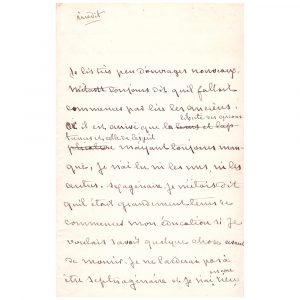 inédit
Je lis très peu d'ouvrages nouveaux.
M'étant toujours dit qu'il fallait
commencer par lire les anciens.
et il est arrivé que la liberté du
temps et
m'ayant toujours man-
qué, je n'ai lu ni les uns, ni les
autres. Sexagénaire je m'étais dit
qu'il était grandement temps de
commencer mon éducation si je
voulais savoir quelque chose avant
de mourir. Je ne tarderai pas à
être septuagénaire et je n'ai rien